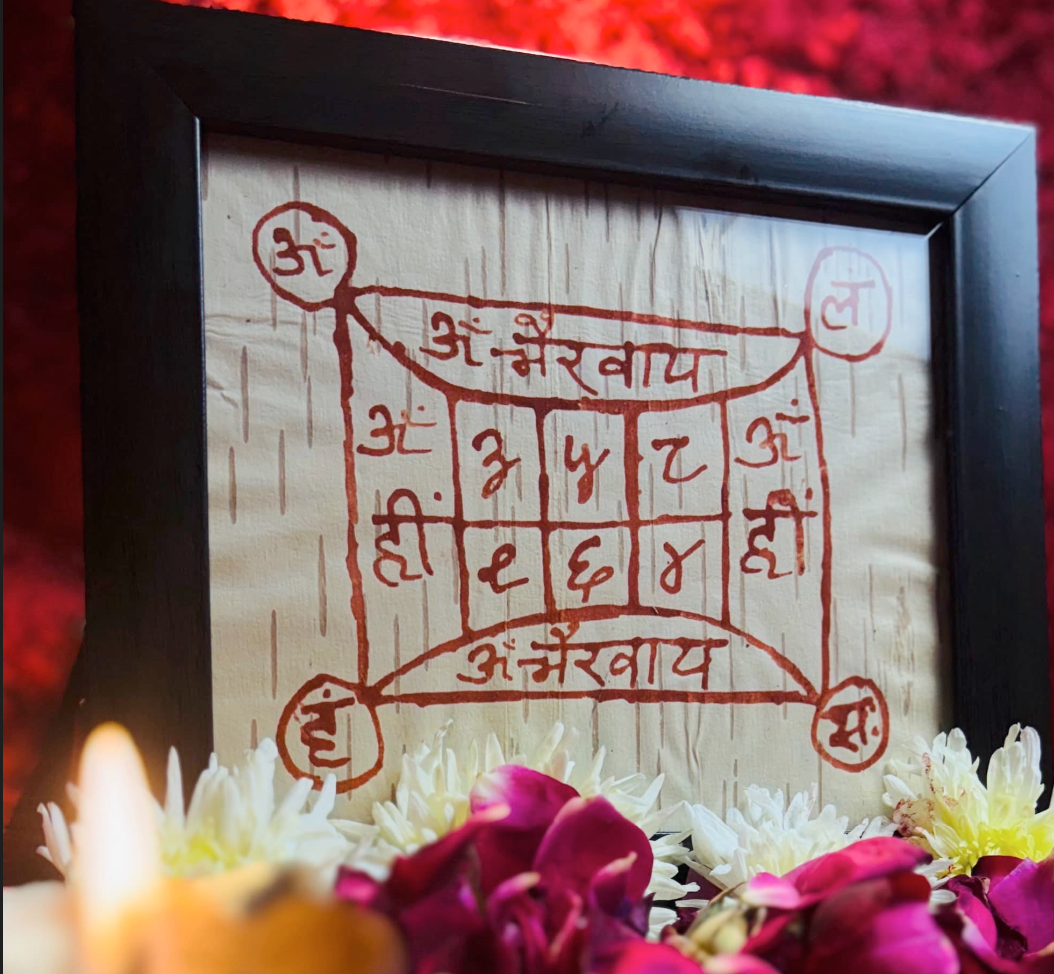 अं ल
अं भैरवाय
अं ३ ५ ८ अं
हीं ९ ६ ४ हीं
अं भैरवाय
हं सः